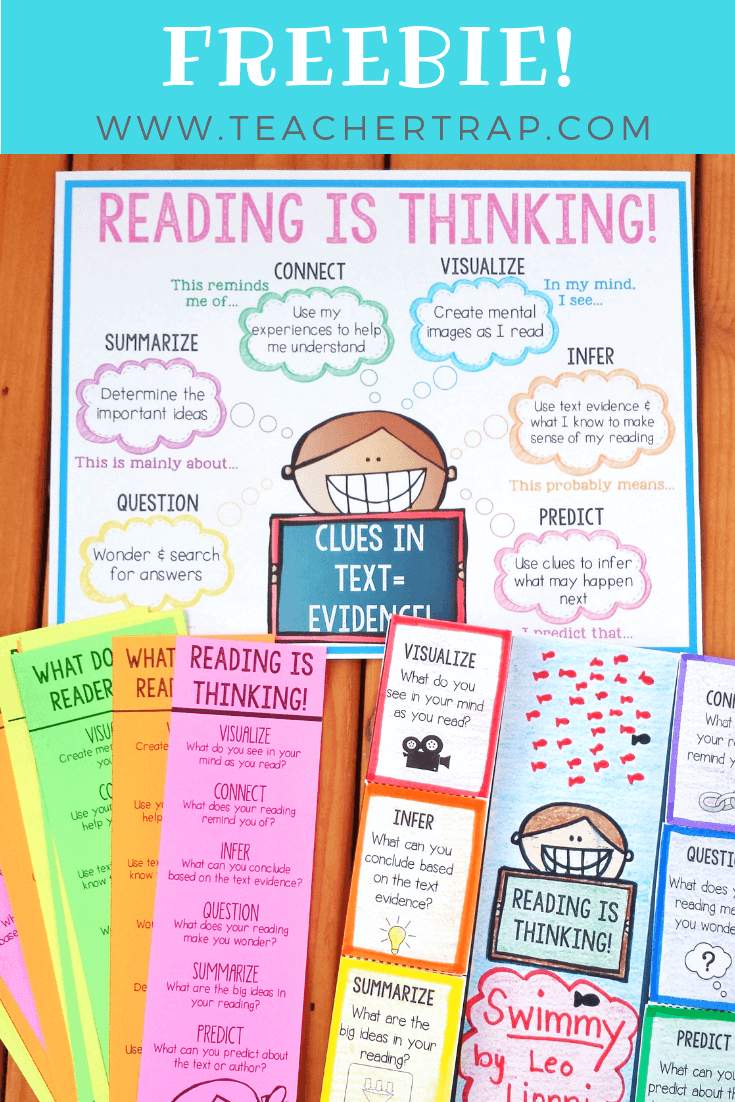 FREEBIE!
WWW.TEACHERTRAP.COM
READING IS THINKING!
CONNECT
This reminds
me of...
Use my
experiences to help
me understand
VISUALIZE
In my mind,
I see...
Create mental
images as I read
SUMMARIZE
Determine the
important ideas
This is mainly about...
INFER
Use text evidence &
what I know to make
sense of my reading
This probably means...
QUESTION
Wonder & search
for answers
PREDICT
Use clues to infer
what may happen
next
I predict that...
CLUES IN
TEXT=
EVIDENCE!
WHAT DO
READER
VISU
Create me
yo
CO
Use your
help y
Use tex
know
WHAT
READ
Create
Use yo
help
Use te
know
Wo
De
Use
READING IS
THINKING!
VISUALIZE
What do you see in your
mind as you read?
CONNECT
What does your reading
remind you of?
INFER
What can you conclude
based on the text evidence?
QUESTION
What does your reading
make you wonder?
SUMMARIZE
What are the big ideas in
your reading?
PREDICT
What can you predict about
the text or author?
VISUALIZE
What do you
see in your mind
as you read?
INFER
What can you
conclude based
on the text
evidence?
SUMMARIZE
What are the
big ideas in your
reading?
READING IS
THINKING!
Swimmy
by Leo
Lionni
CON
What
your re
remind y
QUESTI
What does y
reading me
you wonde
?
PREDICT
What can you
predict about the